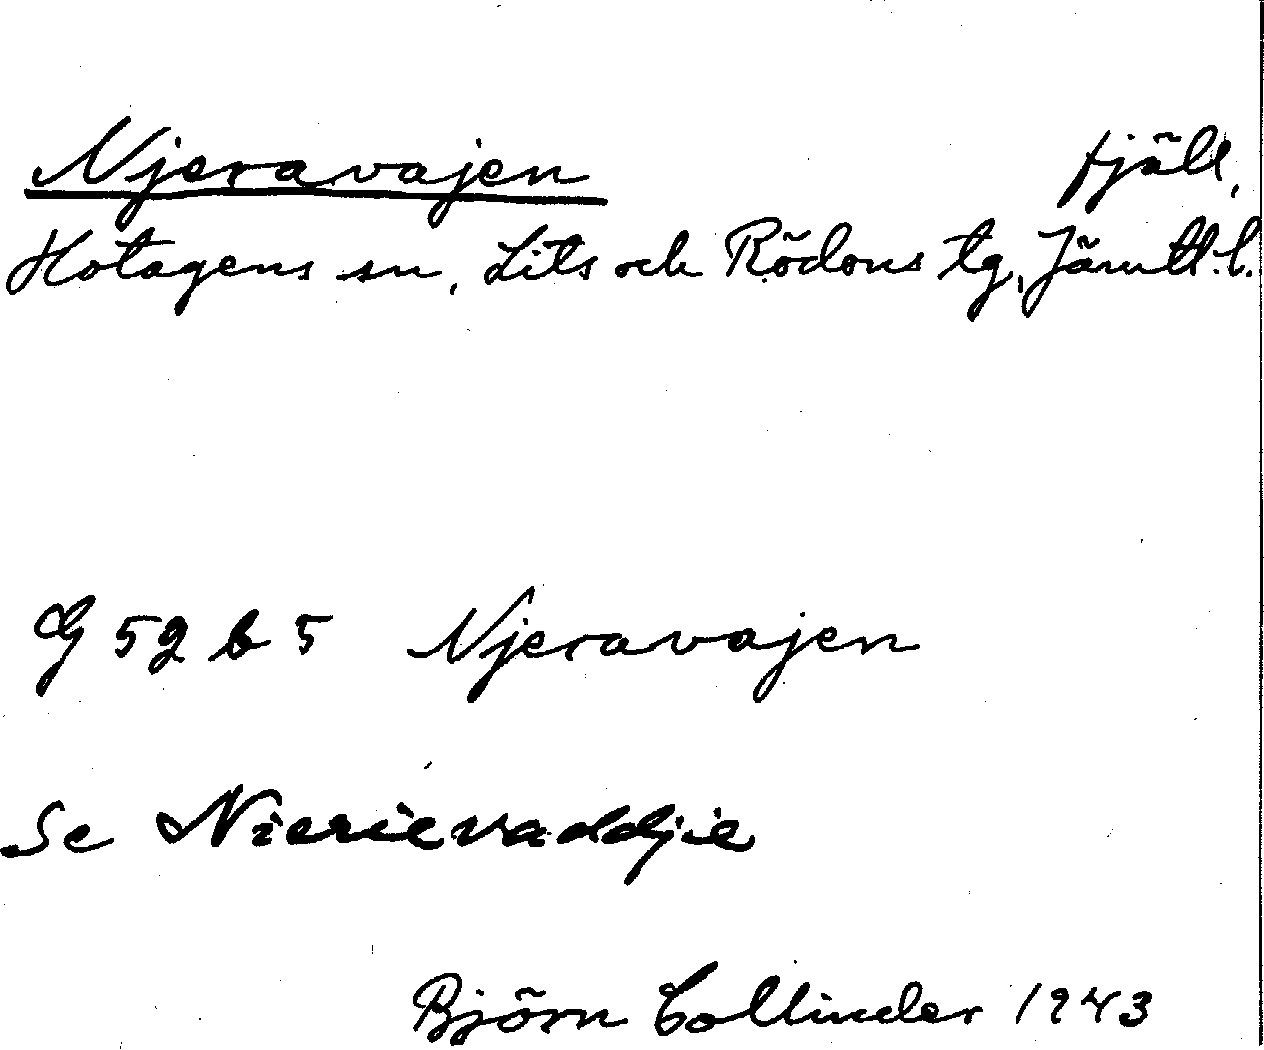 Njeravajen fjäll,
Hotagens sn, Lits och Rödöns tg, Jämtl. l.
G 59 b 5 Njeravajen
Se Nierievaddjie
Björn Collinder 1943